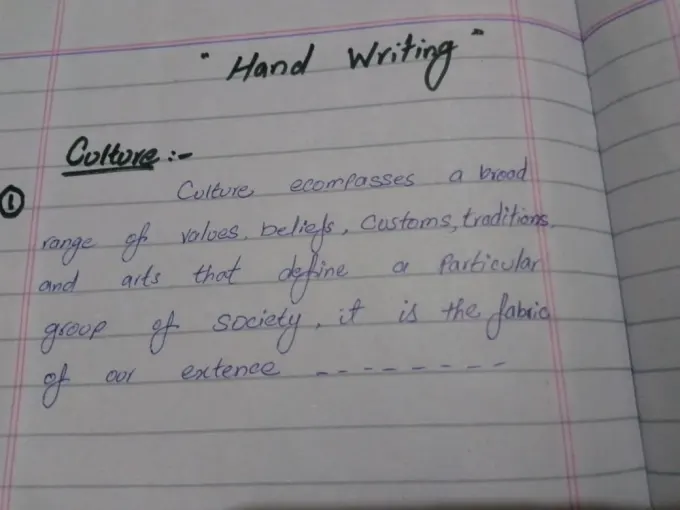 " Hand Writing "
Culture :-
① Culture ecompasses a broad
range of values, beliefs, customs, traditions,
and arts that define a particular
group of society, it is the fabric
of our extence --------